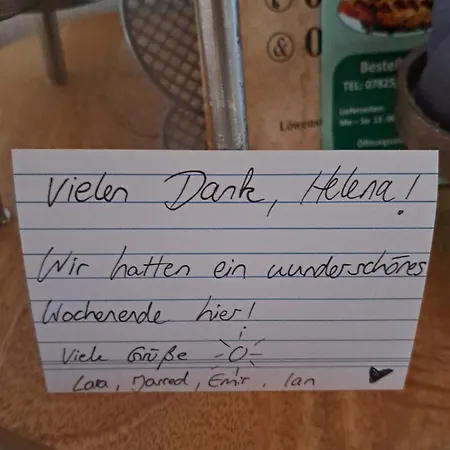 &
Bestell
TEL: 07825
Lieferzeiten:
Löwenst
Vielen Dank, Helena!
Wir hatten ein wunderschönes
Wochenende hier!
Viele Grüße
Lara, Jarred, Emir, Ian